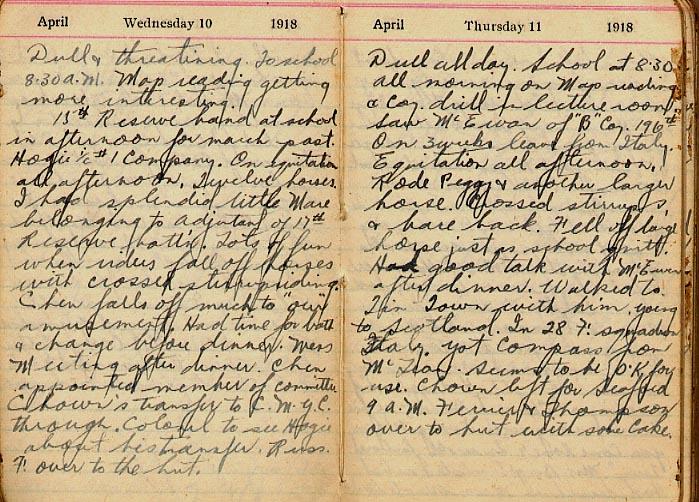 April Wednesday 10 1918
Dull & threatining. To school
8:30 A.M. Map reading getting
more interesting.
15th Reserve band at school
in afternoon for march past.
Hogie i/c #1 Company. On equitation
all afternoon. Twelve horses.
I had splendid little Mare
belonging to Adjutant of 17th
Reserve batt'n. Lots of fun
when riders fall off horses
with crossed stirrup riding.
Chen falls off much to "our"
amusement. Had time for bath
& change before dinner. Mess
Meeting after dinner. Chen
appointed member of committee
Chown's transfer to C.M.G.C.
through. Colonel to see Hogie
about his transfer. Russ.
F. over to the hut.
April Thursday 11 1918
Dull all day. School at 8:30
all morning on Map reading
& Coy. drill in lecture room.
Saw McEwan of "B" Coy. 196th
On 3 weeks leave from Italy.
Equitation all afternoon.
Rode Peggy & another larger
horse. Crossed stirrups
& bare back. Fell off large
horse just as school quit.
Had good talk with McEwan
after dinner. Walked to
in Town with him. going
to Scotland. In 28 F. squadron
Italy. Got Compass from
Seems to be O.K. for
use. Chown left for Seaford
9 A.M. Ferrier & Thompson
over to hut with some Cake.